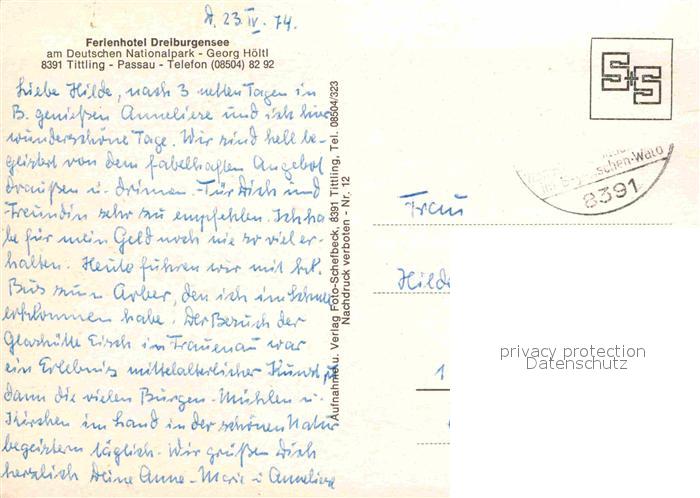 d. 23. IV. 74.
Ferienhotel Dreiburgensee
am Deutschen Nationalpark - Georg Höltl
8391 Tittling - Passau - Telefon (08504) 82 92
Liebe Hilde, nach 3 netten Tagen in
B. genießen Anneliese und ich hier
wunderschöne Tage. Wir sind hell be-
geistert von dem fabelhaften Angebot
draußen u. drinnen. Für Dich und
Freundin sehr zu empfehlen. Ich ha-
be für mein Geld noch nie so viel er-
halten. Heute führen wir mit
Bus zum Arber, den ich im Schnee
erklommen habe. Der Besuch der
Glashütte Eisch in Frauenau war
ein Erlebnis mittelalterlicher Kunst,
dann die vielen Burgen, Mühlen u.
Kirchen im Land in der schönen Natur
begeistern täglich. Wir grüßen Dich
herzlich Deine Anne-Marie u. Anneliese
Aufnahme u. Verlag Foto-Schefbeck, 8391 Tittling, Tel. 08504/323
Nachdruck verboten - Nr. 12
S+S
im Bayerischen-Wald
8391
Frau
Hilde
1
privacy protection
Datenschutz